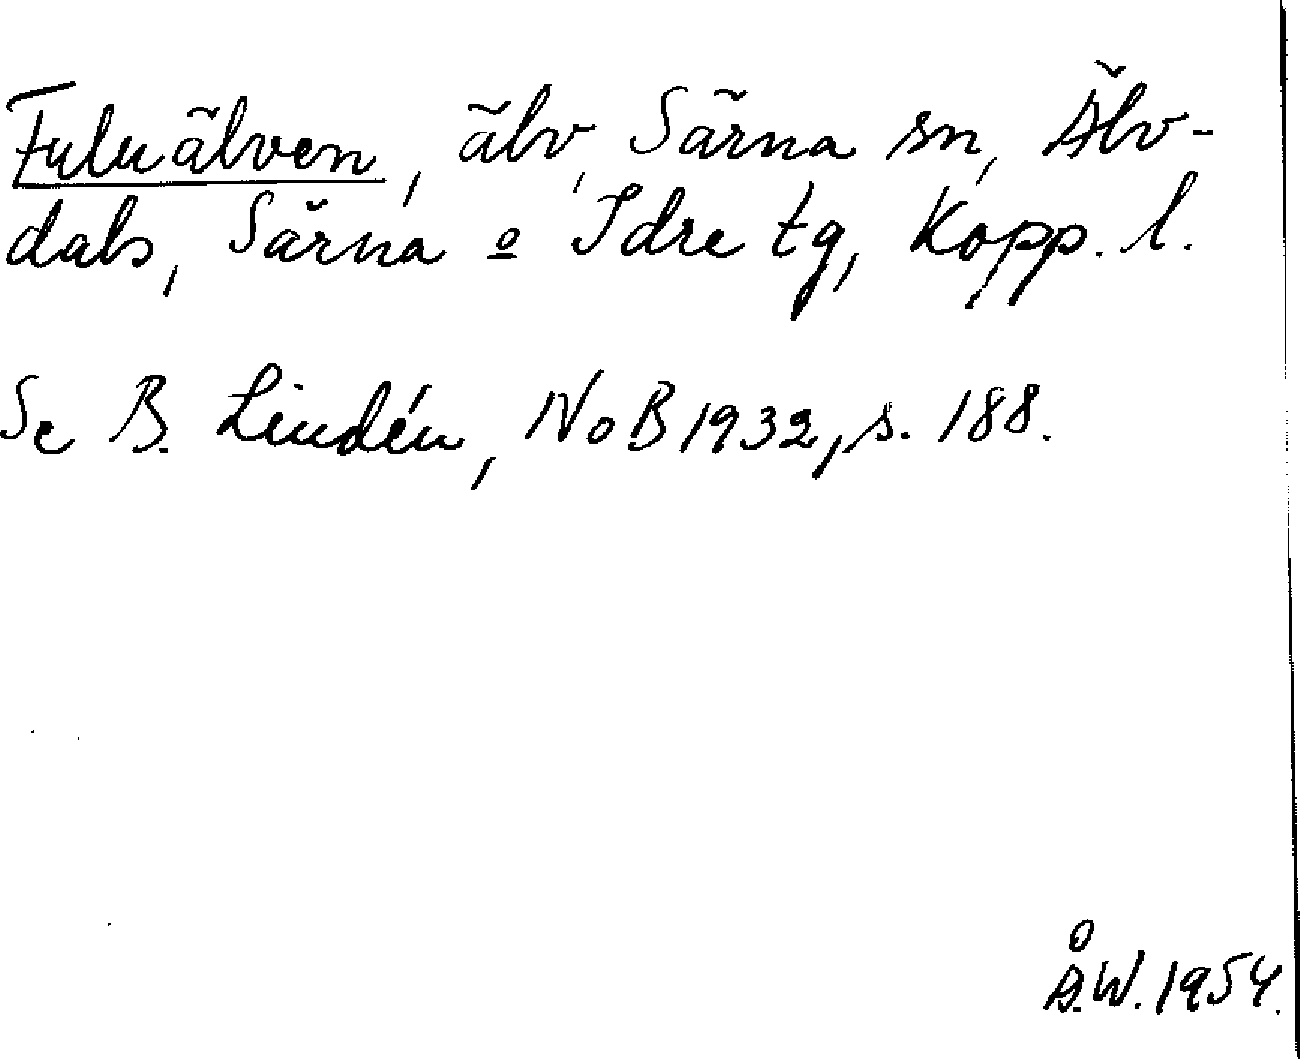 Fuluälven, älv, Särna sn, Älv-
dals, Särna o Idre tg, Kopp. l.
Se B. Lindén, NoB 1932, s. 188.
Å.W. 1954.